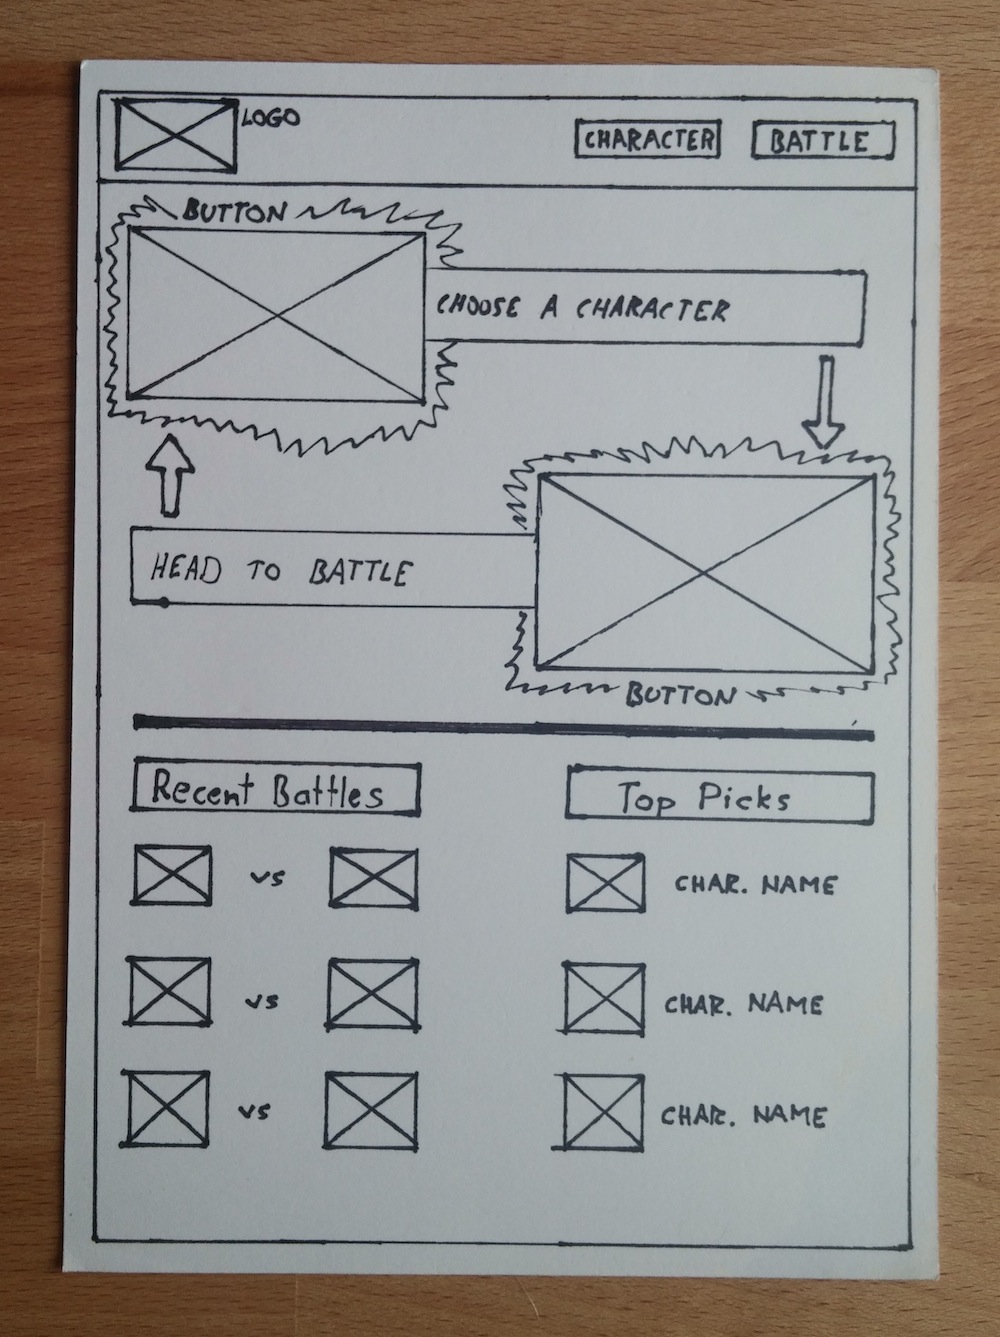 LOGO
CHARACTER
BATTLE
BUTTON
CHOOSE A CHARACTER
HEAD TO BATTLE
BUTTON
Recent Battles
Top Picks
vs
CHAR. NAME
vs
CHAR. NAME
vs
CHAR. NAME